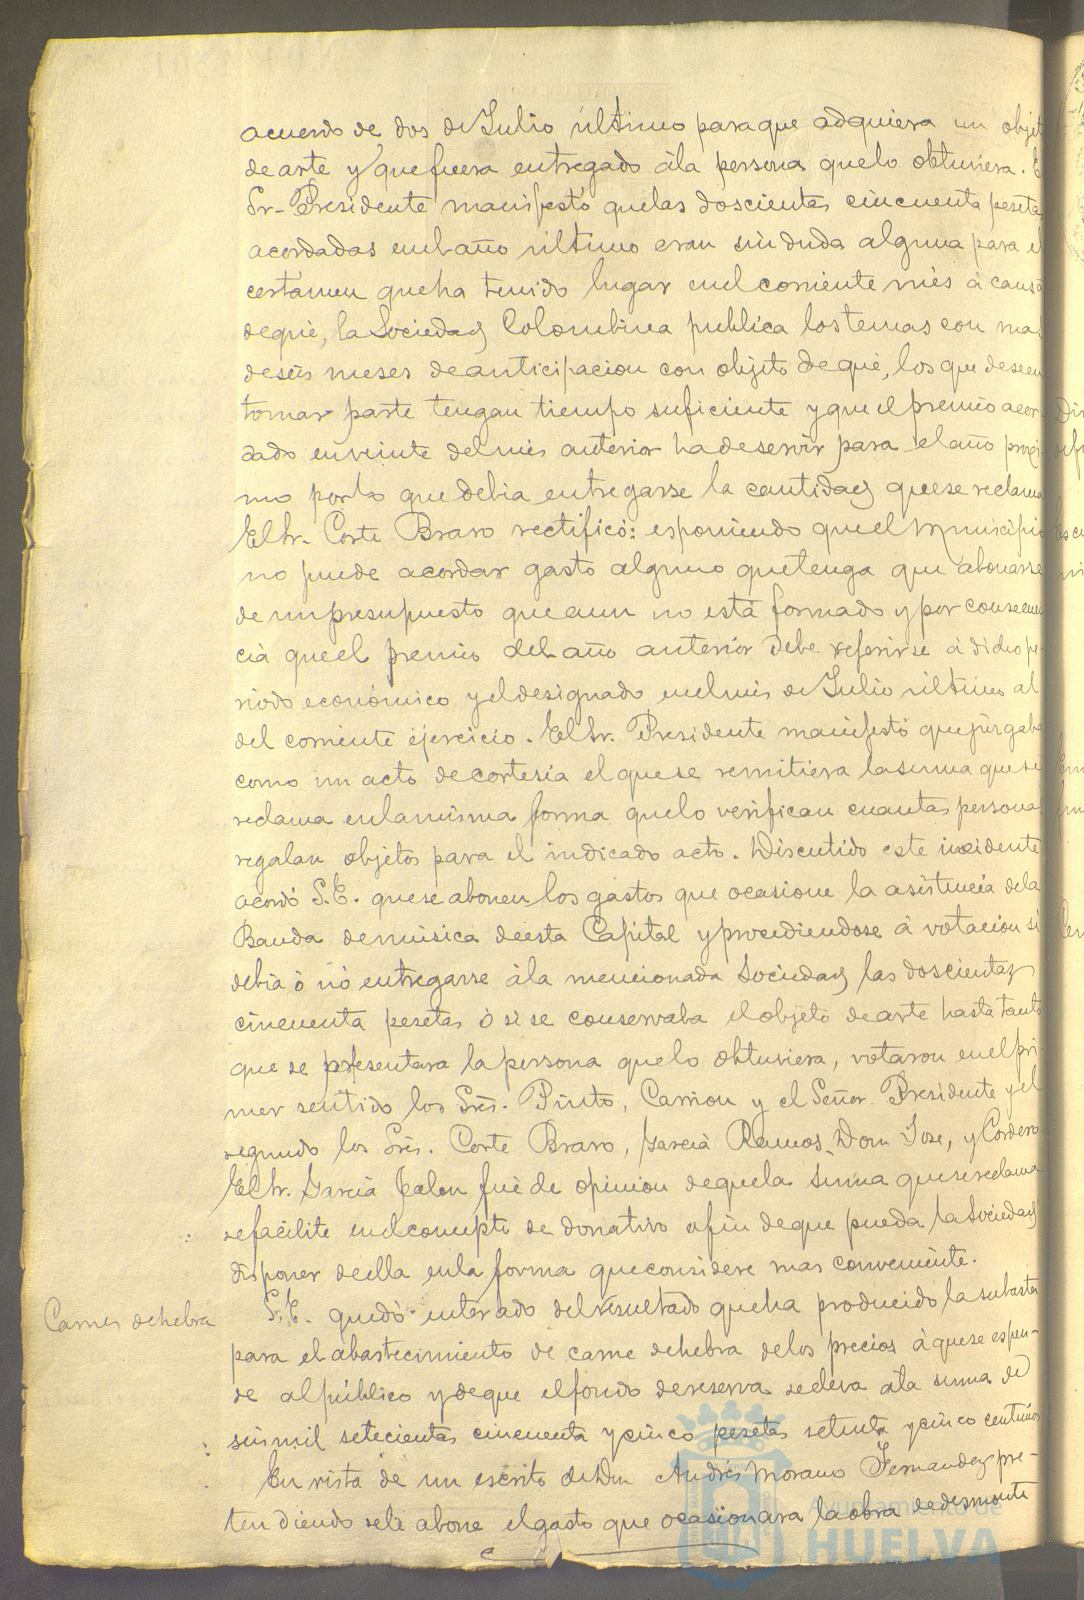 acuerdo de dos de Julio último para que adquiera un objet
de arte y que fuera entregado á la persona que lo obtuviera. E
Sr. Presidente manifestó que las doscientas cincuenta peseta
acordadas en el año último eran sin duda alguna para el
certamen que ha tenido lugar en el corriente mes á causa
de que, la Sociedad Colombina publica los temas con mas
de seis meses de anticipacion con objeto de que, los que deseen
tomar parte tengan tiempo suficiente y que el premio acor
dado en veinte del mes anterior ha de servir para el año proxi
mo por lo que debia entregarse la cantidad que se reclama
El Sr. Corte Bravo rectificó: esponiendo que el Municipio
no puede acordar gasto alguno que tenga que abonarse
de un presupuesto que aun no está formado y por consecuen
cia que el premio del año anterior debe referirse á dicho pe
riodo económico y el designado en el mes de Julio último al
del corriente ejercicio. El Sr. Presidente manifestó que juzgaba
como un acto de cortesia el que se remitiera la suma que se
reclama en la misma forma que lo verifican cuantas personas
regalan objetos para el indicado acto. Discutido este incidente
acordó S.E. que se abonen los gastos que ocasione la asistencia de la
Banda de música de esta Capital y procediendose á votacion si
debia ó nó entregarse á la mencionada Sociedad las doscientas
cincuenta pesetas ó si se conservaba el objeto de arte hasta tanto
que se presentara la persona que lo obtuviera, votaron en el pri
mer sentido los Sres. Pinto, Carrion y el Señor Presidente y el
segundo los Sres. Corte Bravo, Garcia Ramos, Don Jose, y Cordero
El Sr. Garcia fué de opinion de que la suma que se reclama
se facilite en el concepto de donativo á fin de que pueda la Sociedad
disponer de ella en la forma que considere mas conveniente.
Carnes de hebra
S.E. quedó enterado del resultado que ha producido la subasta
para el abastecimiento de carne de hebra de los precios á que se espen-
de al público y de que el fondo de reserva se eleva á la suma de
seis mil setecientas cincuenta y cinco pesetas setenta y cinco centimos
En vista de un escrito de Don Andrés Morano Fernandez pre-
tendiendo se le abone el gasto que ocasionara la obra de desmonte
Ayuntamiento de
HUELVA